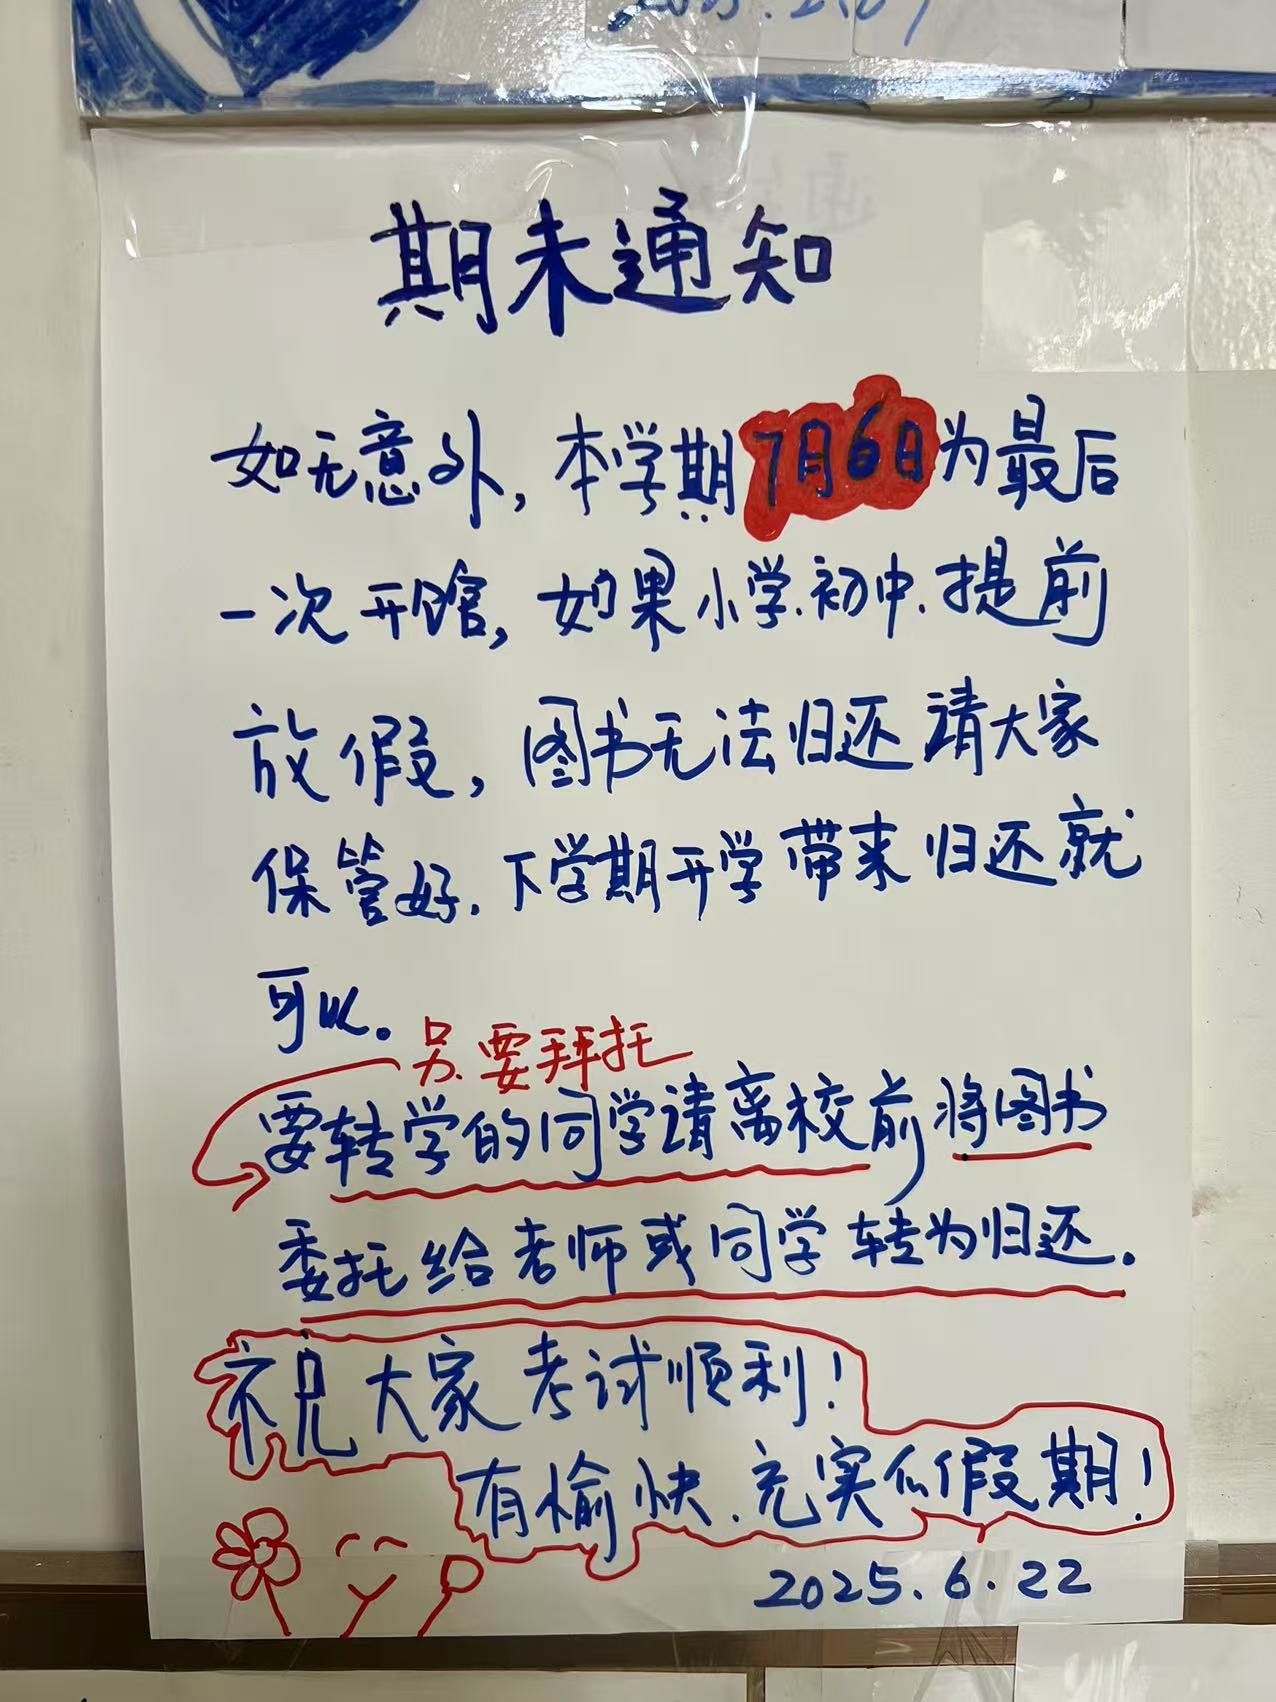 期末通知
如无意外，本学期7月6日为最后
一次开馆，如果小学、初中、提前
放假，图书无法归还请大家
保管好.下学期开学带来归还就
可以。
另.要拜托
要转学的同学请离校前将图书
委托给老师或同学转为归还.
祝大家考试顺利！
有愉快、充实的假期！
2025.6.22